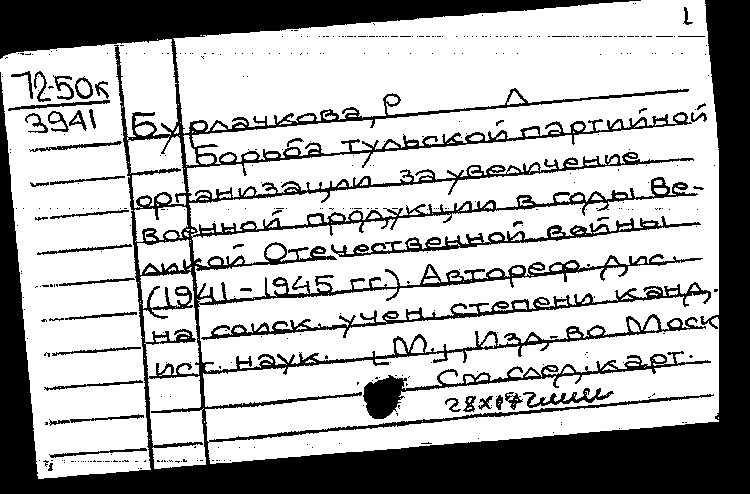 1
72-50к
3941
Бурлачкова, Р Л
Борьба тульской партийной
организации за увеличение
военной продукции в годы Ве-
ликой Отечественной войны
(1941-1945 гг.). Автореф. дис.
на соиск. учен. степени канд.
ист. наук. [М.], Изд-во Моск
См. след. карт.